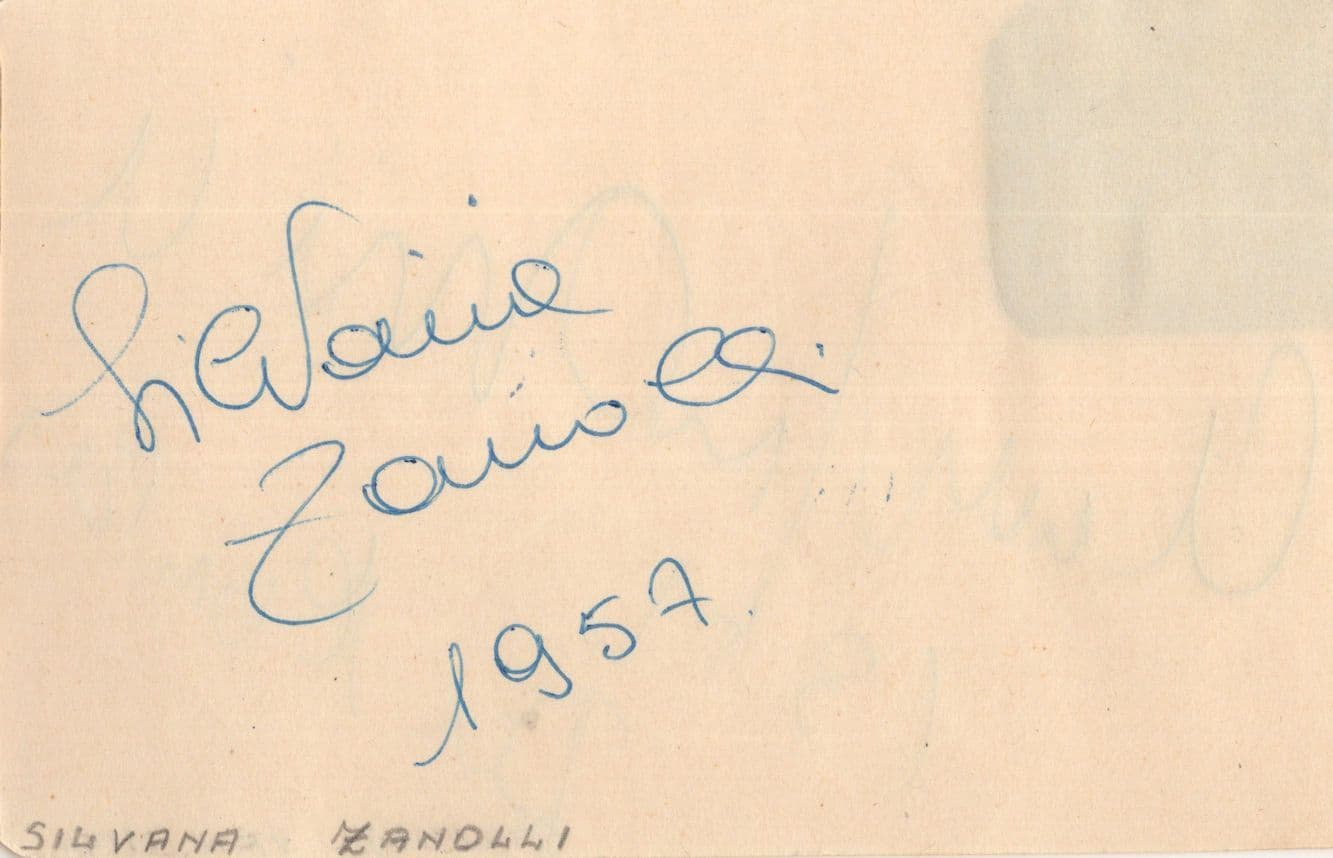 Silvana
Zanolli
1957.
SILVANA ZANOLLI